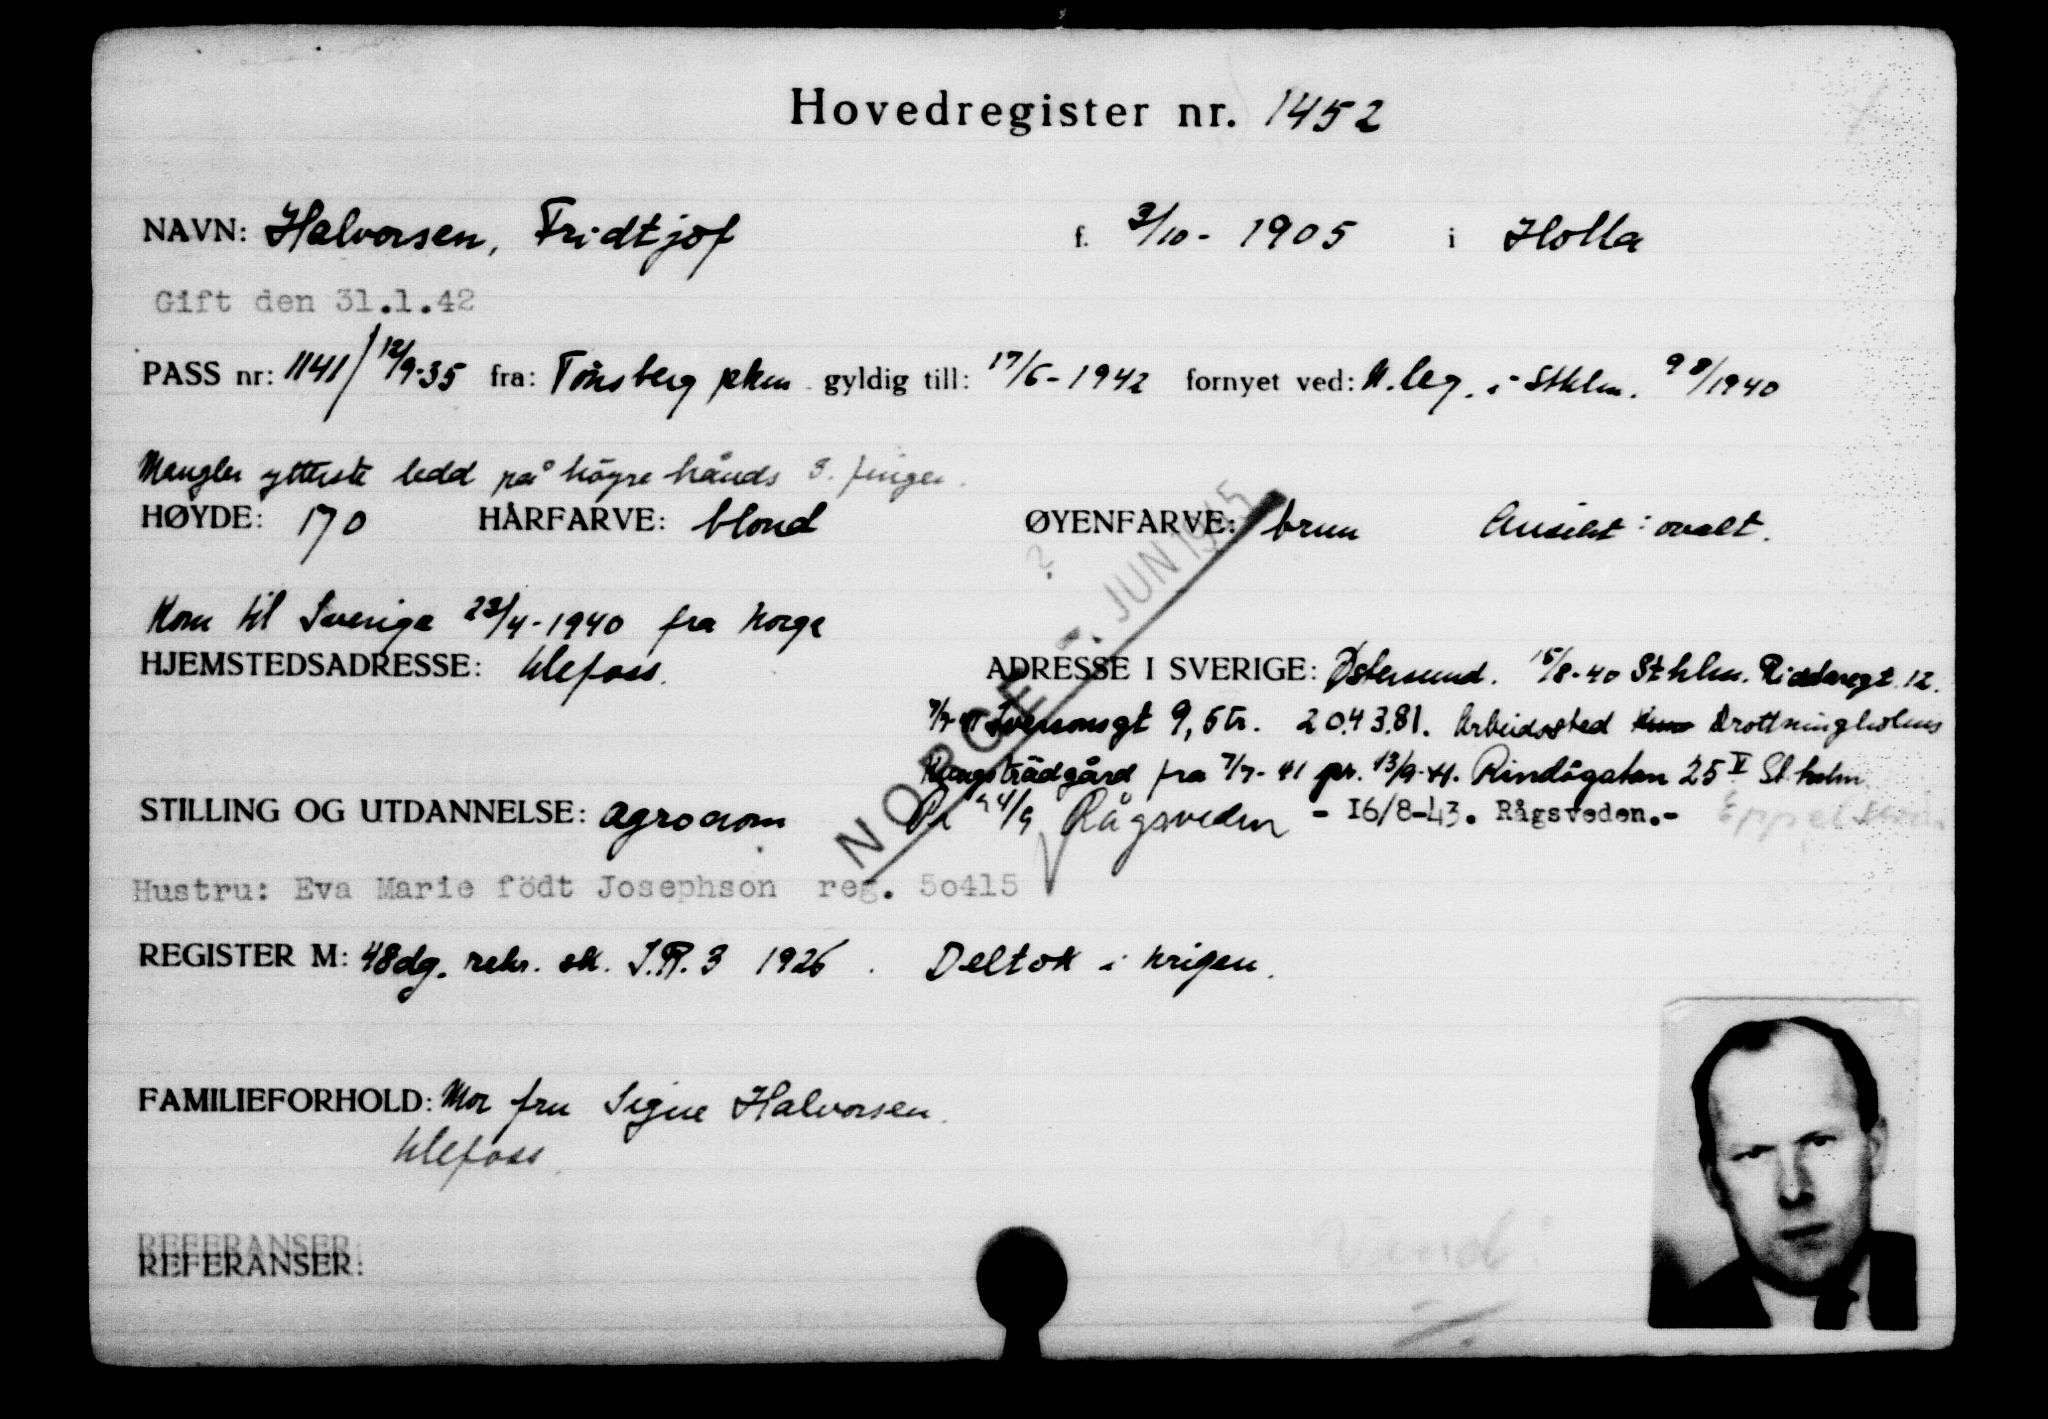 Hovedregister nr. 1452
NAVN: Halvorsen, Fridtjof f. 3/10 - 1905 i Holla
Gift den 31.1.42
PASS nr: 1141/12/9-35 fra: Tönsberg pkm gyldig till: 17/6-1942 fornyet ved: N. leg. i Sthlm. 9 8/1940
Mangler ytterste ledd på höyre hånds 3. finger.
HØYDE: 170 HÅRFARVE: blond ØYENFARVE: brun Ansikt: ovalt.
?
NORGE -. JUN 1945
Kom til Sverige 23/4-1940 fra Norge
HJEMSTEDSADRESSE: Ulefoss. ADRESSE I SVERIGE: Østersund. 15/8-40 Sthlm. Riddaregt 12.
7/7-41 Iversonsgt 9, 5tr. 204381. Arbeidssted Drottningholms
Kungsträdgård fra 7/7-41 pr. 13/9-41. Rindögatan 25 V St.holm
STILLING OG UTDANNELSE: agronom Rågsveden - 16/8-43. Rågsveden.-
Hustru: Eva Marie födt Josephson reg. 50415
REGISTER M: 48dg. rekr. sk. I.R. 3 1926. Deltok i krigen.
FAMILIEFORHOLD: Mor fru Signe Halvorsen.
Ulefoss.
REFERANSER:
REFERANSER:
Vend!